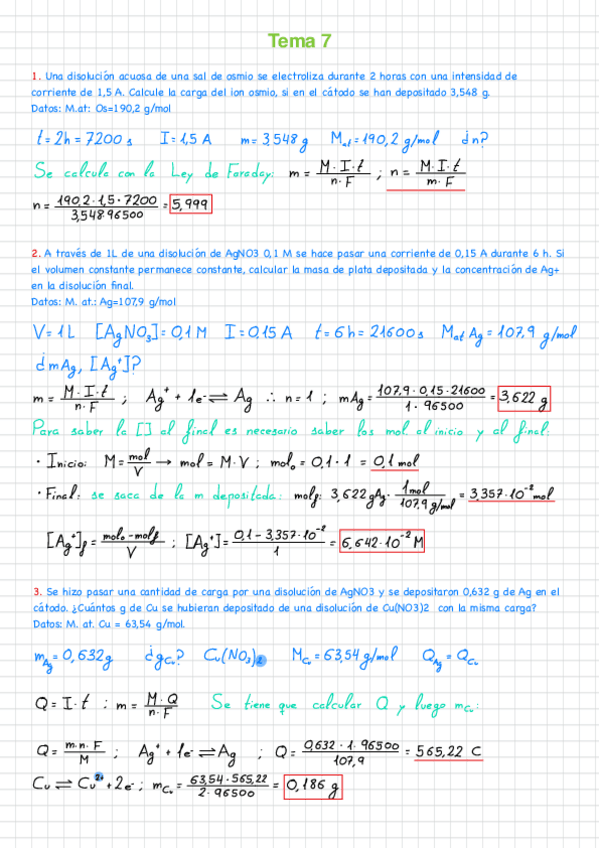 Tema 7
1. Una disolución acuosa de una sal de osmio se electroliza durante 2 horas con una intensidad de
corriente de 1,5 A. Calcule la carga del ion osmio, si en el cátodo se han depositado 3,548 g.
Datos: M.at: Os=190,2 g/mol
t = 2h = 7200 s I = 1,5 A m = 3,548 g Mat = 190,2 g/mol ¿n?
Se calcula con la Ley de Faraday: m = M·I·t / n·F ; n = M·I·t / m·F
n = 190,2·1,5·7200 / 3,548·96500 = 5,999
2. A través de 1L de una disolución de AgNO3 0,1 M se hace pasar una corriente de 0,15 A durante 6 h. Si
el volumen constante permanece constante, calcular la masa de plata depositada y la concentración de Ag+
en la disolución final.
Datos: M. at.: Ag=107,9 g/mol
V = 1L [AgNO3] = 0,1 M I = 0,15 A t = 6h = 21600 s Mat Ag = 107,9 g/mol
¿mAg, [Ag+]?
m = M·I·t / n·F ; Ag+ + 1e- ⇌ Ag ∴ n = 1 ; mAg = 107,9·0,15·21600 / 1·96500 = 3,622 g
Para saber la [] al final es necesario saber los mol al inicio y al final:
· Inicio: M = mol / V → mol = M·V ; mol₀ = 0,1·1 = 0,1 mol
· Final: se saca de la m depositada: molf: 3,622 gAg · 1mol / 107,9 g/mol = 3,357·10⁻² mol
[Ag+]f = mol₀ - molf / V ; [Ag+] = 0,1 - 3,357·10⁻² / 1 = 6,642·10⁻² M
3. Se hizo pasar una cantidad de carga por una disolución de AgNO3 y se depositaron 0,632 g de Ag en el
cátodo. ¿Cuántos g de Cu se hubieran depositado de una disolución de Cu(NO3)2 con la misma carga?
Datos: M. at. Cu = 63,54 g/mol.
mAg = 0,632 g ¿gCu? Cu(NO3)2 MCu = 63,54 g/mol QAg = QCu
Q = I·t ; m = M·Q / n·F Se tiene que calcular Q y luego mCu:
Q = m·n·F / M ; Ag+ + 1e- ⇌ Ag ; Q = 0,632·1·96500 / 107,9 = 565,22 C
Cu ⇌ Cu2+ + 2e- ; mCu = 63,54·565,22 / 2·96500 = 0,186 g